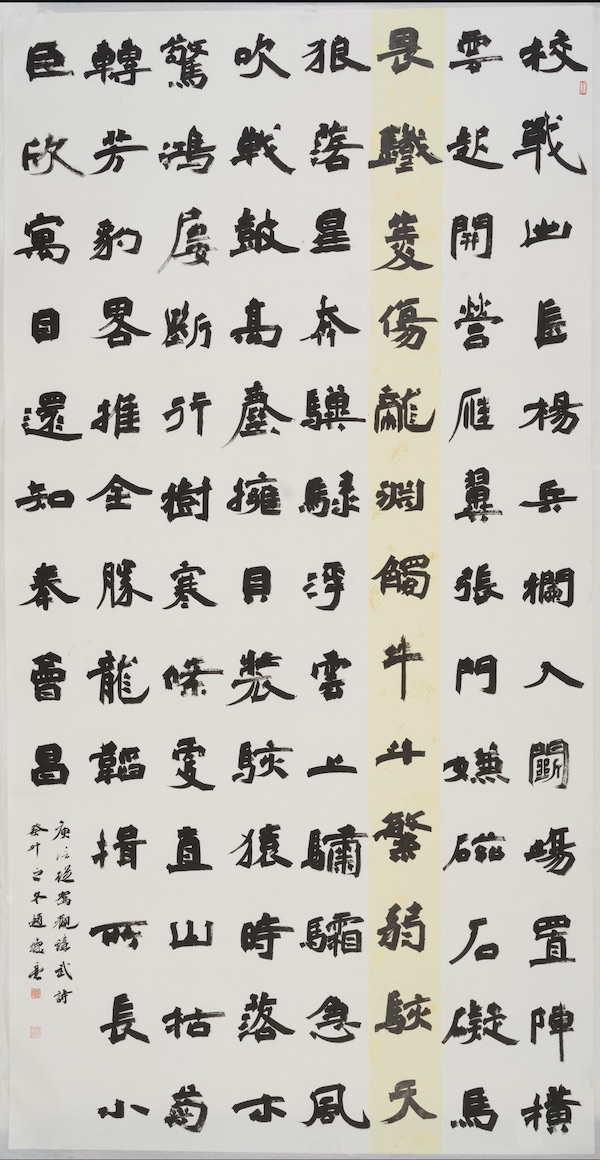 校戰出長楊兵欄入鬬場置陣橫
雲起開營雁翼張門嫌磁石礙馬
畏驖菱傷龍淵觸牛斗繁弱駭天
狼落星奔驥騄浮雲上驌驦急風
吹戰鼓高塵擁貝裝駭猿時落木
驚鴻屢斷行樹寒條更直山枯菊
轉芳豹畧推全勝龍韜揖所長小
臣欣寓目還知奉會昌
庾信從駕觀講武詩
癸卯之冬趙